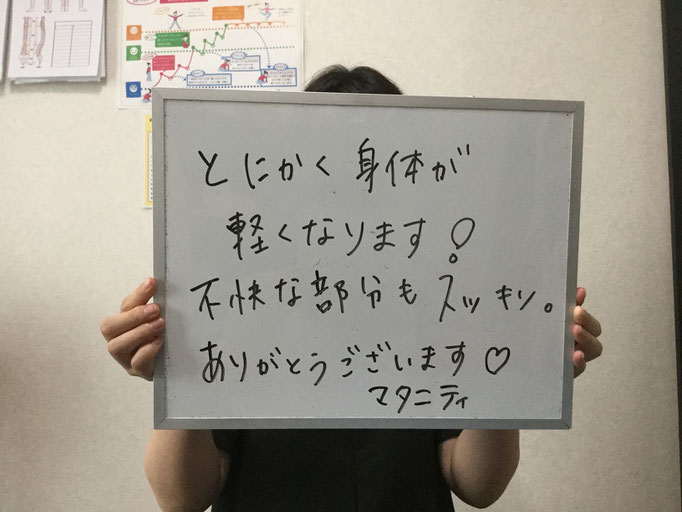 とにかく身体が
軽くなります!
不快な部分もスッキリ。
ありがとうございます♡
マタニティ